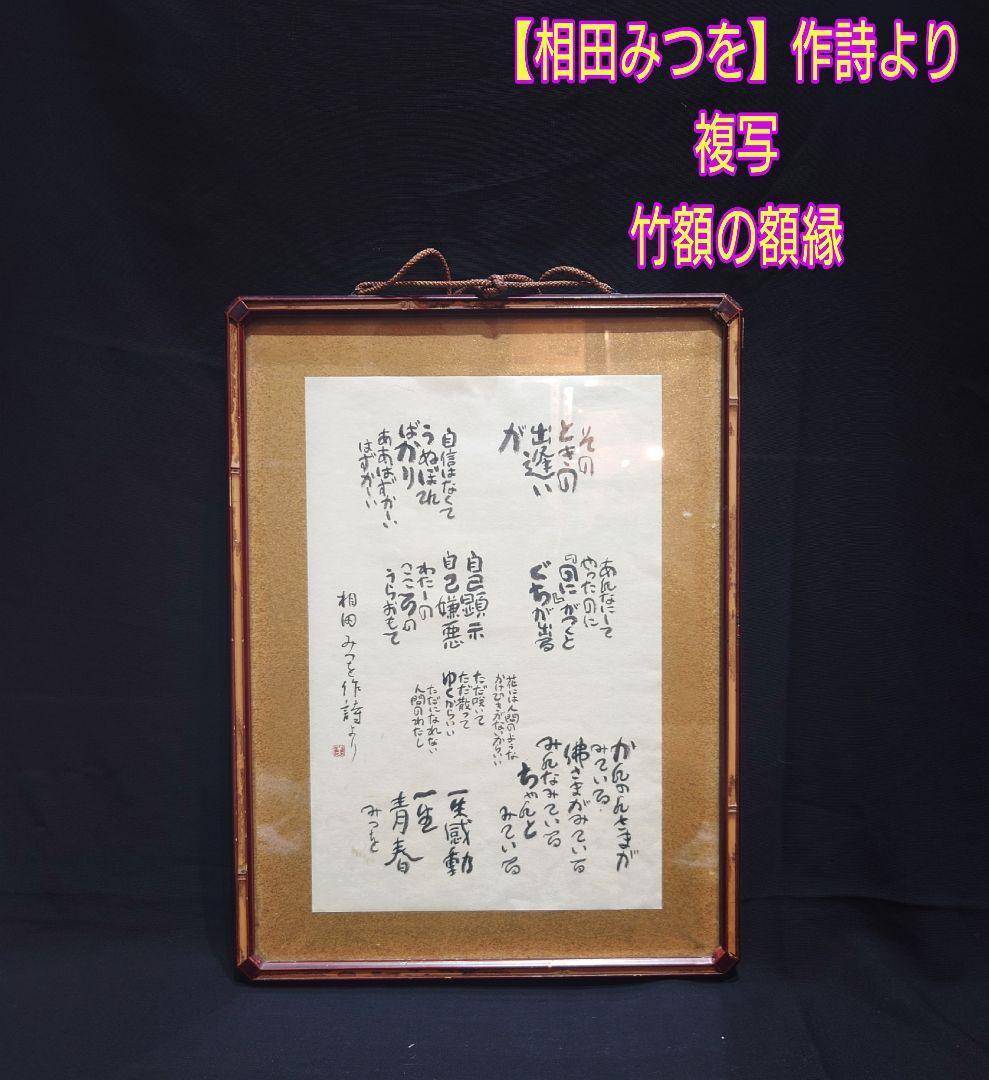 【相田みつを】作詩より
複写
竹額の額縁
その
ときの
出逢い
が
自信はなくて
うぬぼれ
ばかり
ああはずかしい
はずかしい
あんなにして
やったのに
『のに』がつくと
ぐちが出る
自己顕示
自己嫌悪
わたしの
こころの
うらおもて
花には人間のような
かけひきがないからいい
ただ咲いて
ただ散って
ゆくからいい
ただになれない
人間のわたし
かんのんさまが
みている
佛さまがみている
みんなみている
ちゃんと
みている
一生感動
一生
青春
みつを
相田みつを作詩より